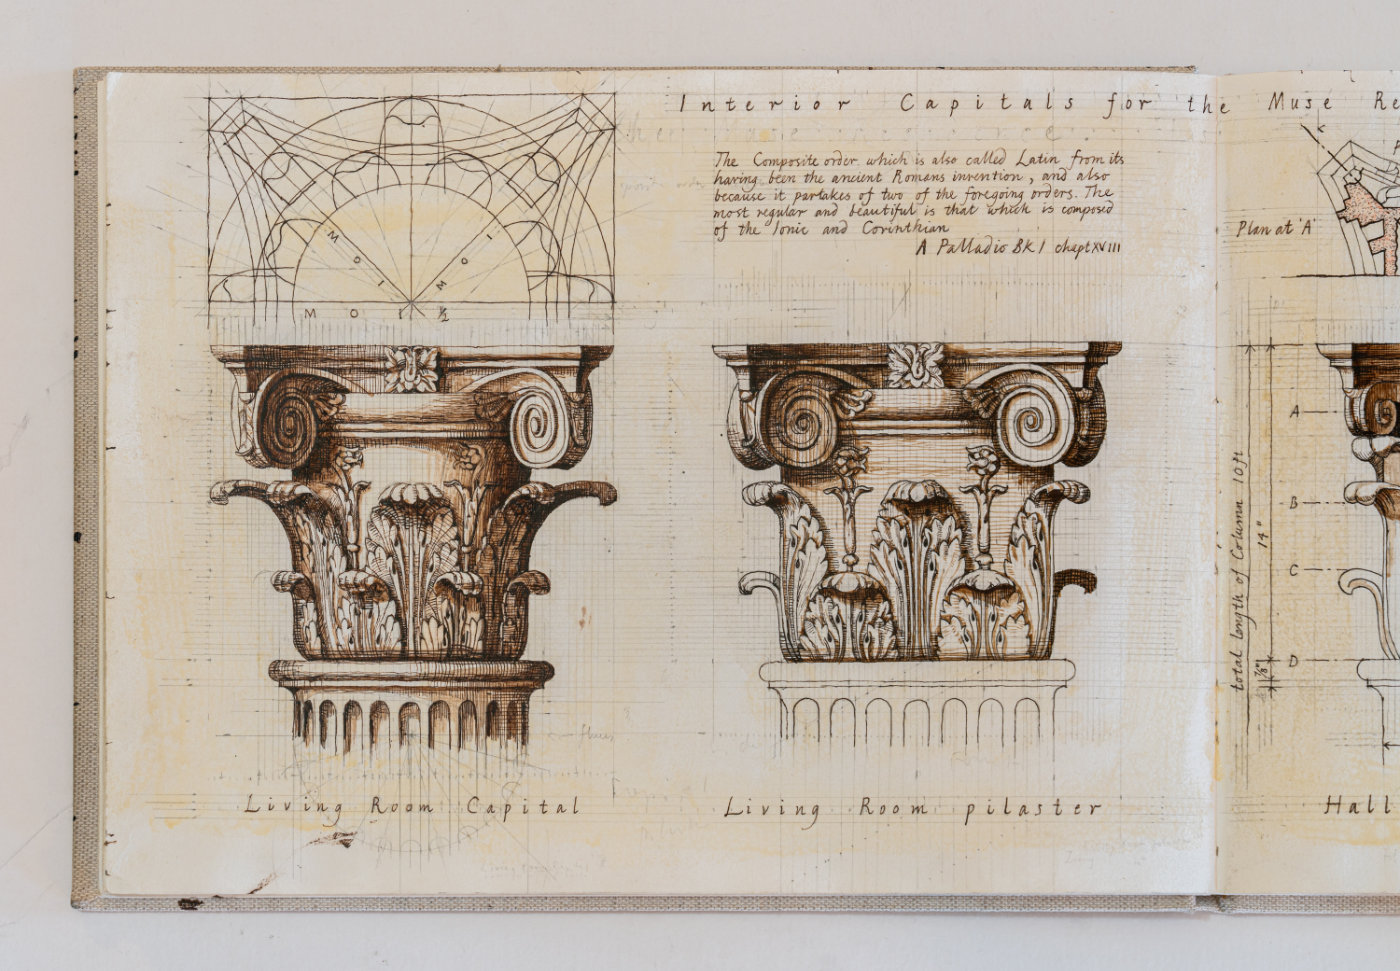 Interior Capitals for the Muse Re
The Composite order which is also called Latin from its
having been the ancient Romans invention, and also
because it partakes of two of the foregoing orders. The
most regular and beautiful is that which is composed
of the Ionic and Corinthian
A Palladio BK I chapt XVIII
MO I
MO I
MO I ½
Plan at 'A'
A
B
C
D
total length of Column 10ft
14"
flutes
Living Room Capital
Living Room pilaster
Hall